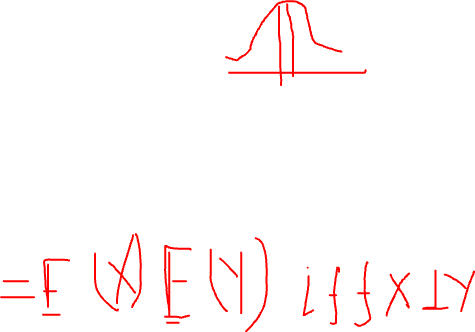 = E(X) E(Y) iff X ⊥ Y